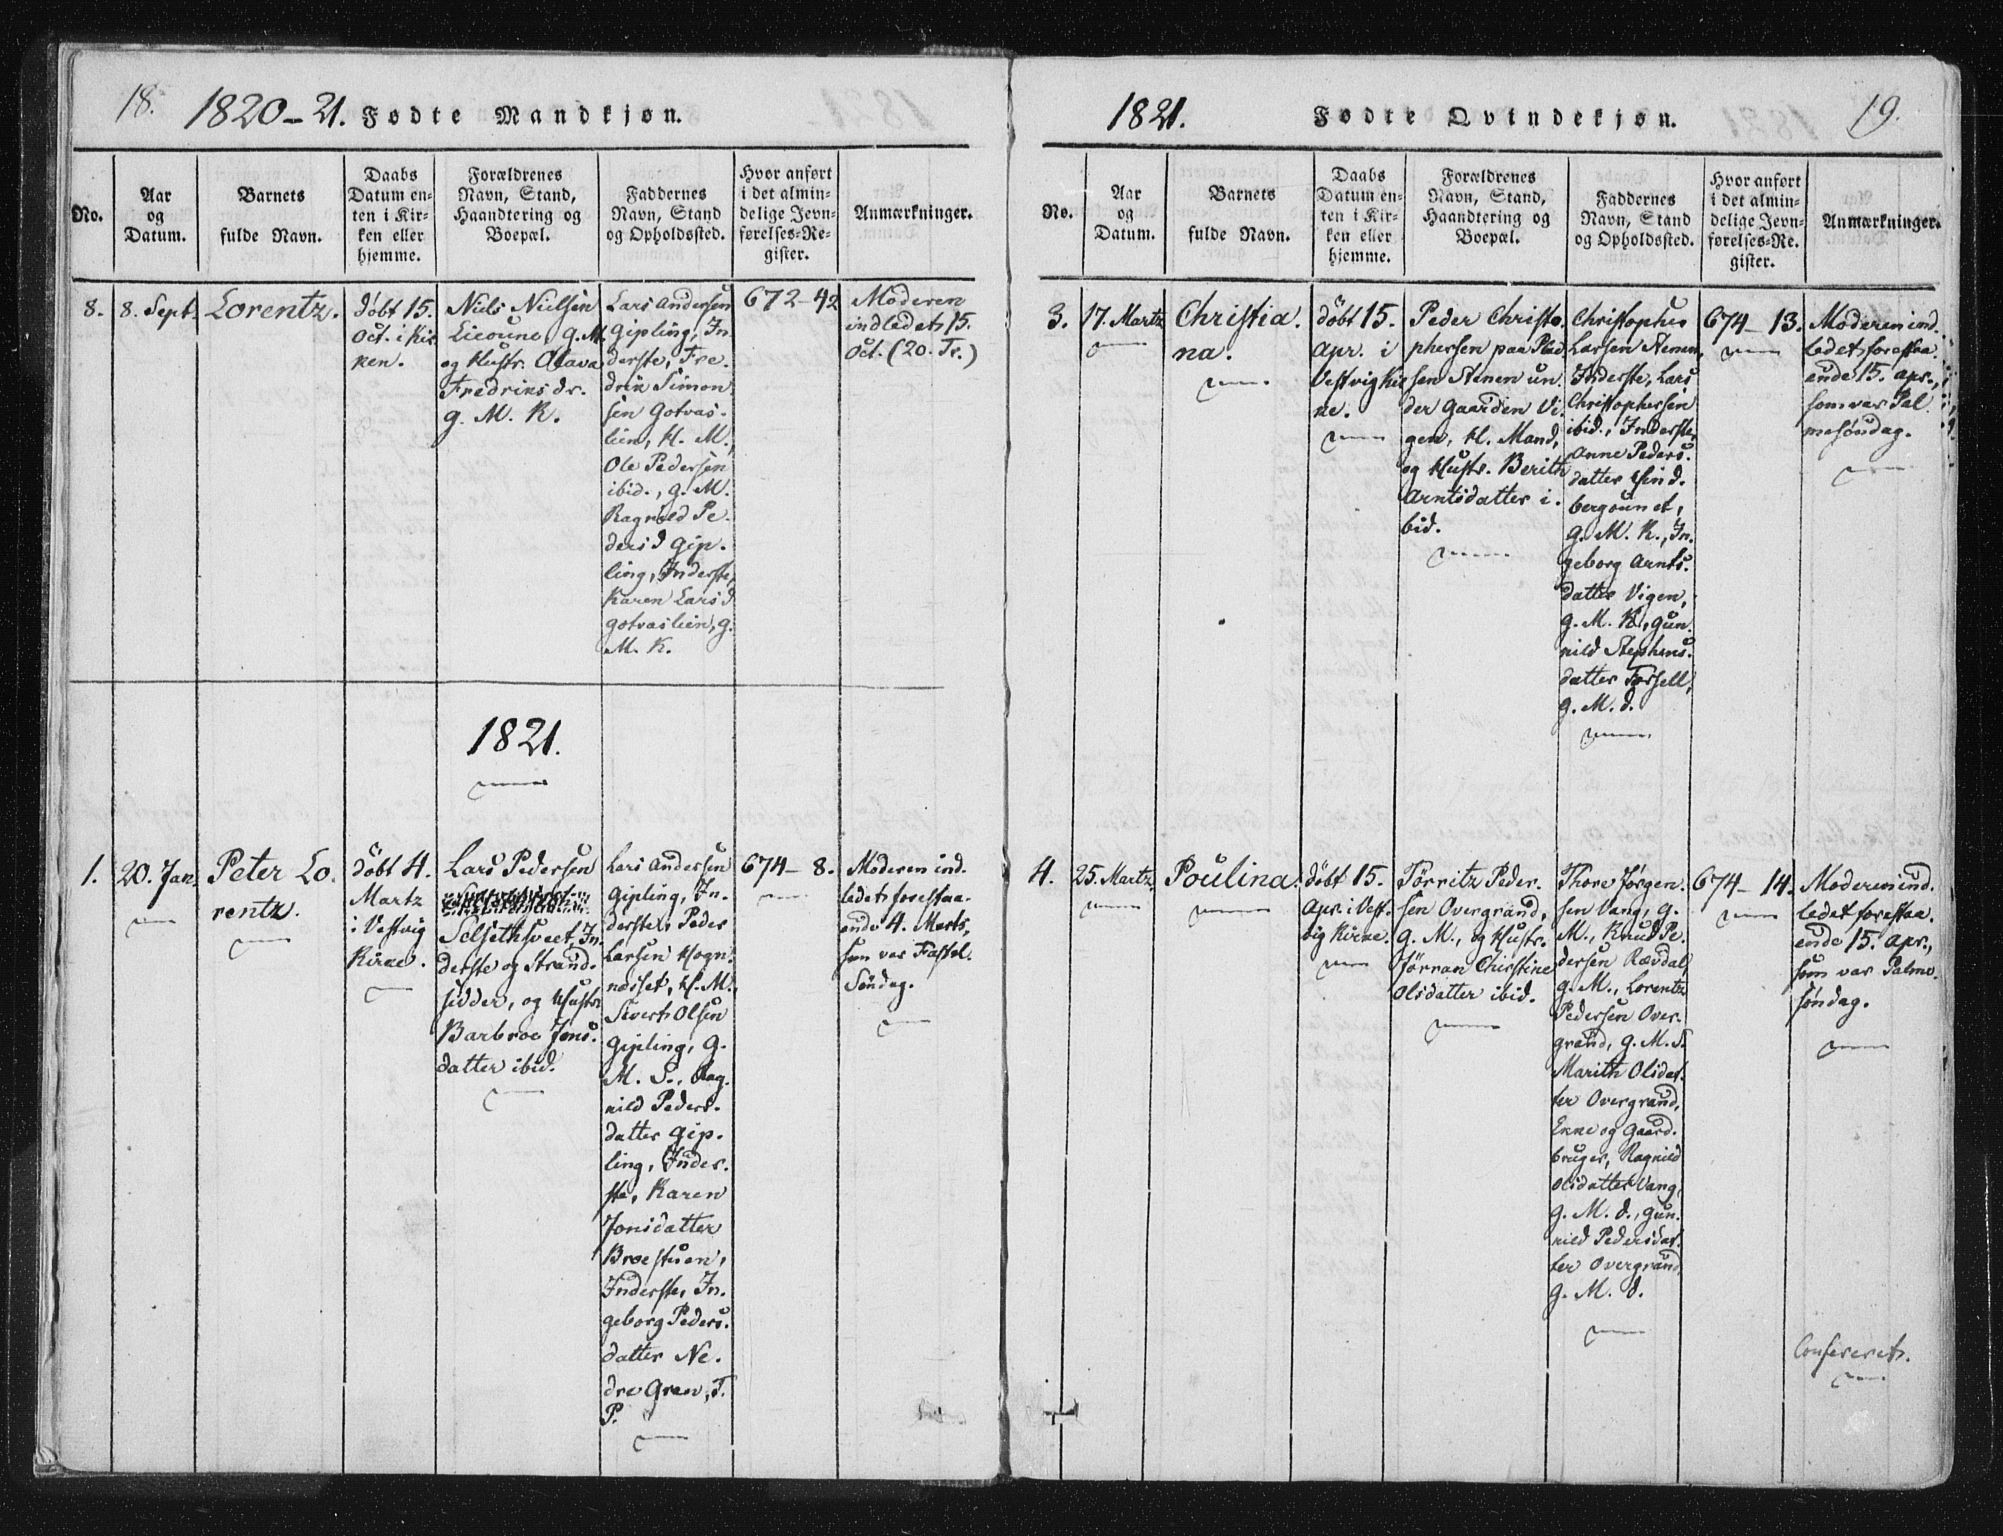 18.
1820-21. Fødte Mandkjøn.
No.
Aar
og
Datum.
Barnets
fulde Navn.
Daabs
Datum en-
ten i Kir-
ken eller
hjemme.
Forældrenes
Navn, Stand,
Haandtering og
Boepæl.
Faddernes
Navn, Stand
og Opholdssted.
Hvor anført
i det almin-
delige Jevn-
førelses-Re-
gister.
Anmærkninger.
8.
8. Sept.
Lorentz.
døbt 15.
Oct. i Kir
ken.
Niels Nielsen
Lieoune, g. M.
og Hustr. Olava
Fredriks dr.
g. M. K.
Lars Andersen
Gipling, In
derste, Fre
drik Simon
sen Gotvas-
lien, H. M.,
Ole Pedersen
ibid., g. M.
Ragnild Pe
dersd Gip.
ling, Inderste,
Karen Larsd
Gotvaslien, g.
M. K.
672-42
Moderen
indledet 15.
Oct. (20. Tr.)
1821.
1.
20. Jan.
Peter Lo.
rentz.
døbt 4.
Martz
i Vestvig
Kirke.
Lars Pedersen
Selsethsveet, In
derste og Strand.
sidder, og Hustr.
Barbroe Jons.
datter ibid.
Lars Andersen
Gipling, In.
derste, Peder
Larsen Hogn.
nesset, H. M.,
Sivert Olsen
Gipling, G.
M. S., Rag.
nild Peders.
datter Gip.
ling, Inder.
ste, Karen
Jonsdatter
Broestuen,
Inderste, In.
geborg Peders.
datter Ne.
dre Gren, T.
P.
674-8.
Moderen ind.
ledet forestaa.
ende 4. Marts,
som var Fastel.
Søndag.
19.
1821. Fødte Qvindekjøn.
No.
Aar
og
Datum.
Barnets
fulde Navn.
Daabs
Datum en-
ten i Kir-
ken eller
hjemme.
Forældrenes
Navn, Stand,
Haandtering og
Boepæl.
Faddernes
Navn, Stand
og Opholdssted.
Hvor anført
i det almin-
delige Jevn-
førelses-Re-
gister.
Anmærkninger.
3.
17. Martz
Christia.
na.
døbt 15.
Apr. i
Vestvig Kir
ke.
Peder Christo.
phersen paa Plad
sen Stenen un
der Gaarden Vi.
gen, H. Mand,
og Hustr. Berith
Arntsdatter i.
bid.
Christopher
Larsen Stenen,
Inderste, Lars
Christophersen
ibid., Inderste,
Anne Peders.
datter Hind.
bergounet,
g. M. K., In.
geborg Arnts.
datter Vigen,
g. M. K., Gun.
nild Stephens.
datter Forsell,
g. M. d.
674-13.
Moderen ind.
ledet forestaa.
ende 15. Apr.,
som var Pal
mesøndag.
4.
25. Martz.
Poulina.
døbt 15.
Apr. i Vest.
vig Kirke.
Tørritz Peder.
sen Overgrand,
g. M., og Hustr.
Jørran Christine
Olsdatter ibid.
Thore Jørgen.
sen Vang, g.
M., Knud Pe.
dersen Rævdal,
g. M., Lorentz
Pedersen Over.
grand, g. M. S.
Marith Olsdat.
ter Overgrand,
Enke og Gaard.
bruger, Ragnild
Olsdatter Vang,
g. M. d., Gun.
nild Pedersdat.
ter Overgrand,
g. M. d.
674-14.
Moderen ind.
ledet forestaa.
ende 15. Apr.,
som var Palme.
søndag.
Confereret.